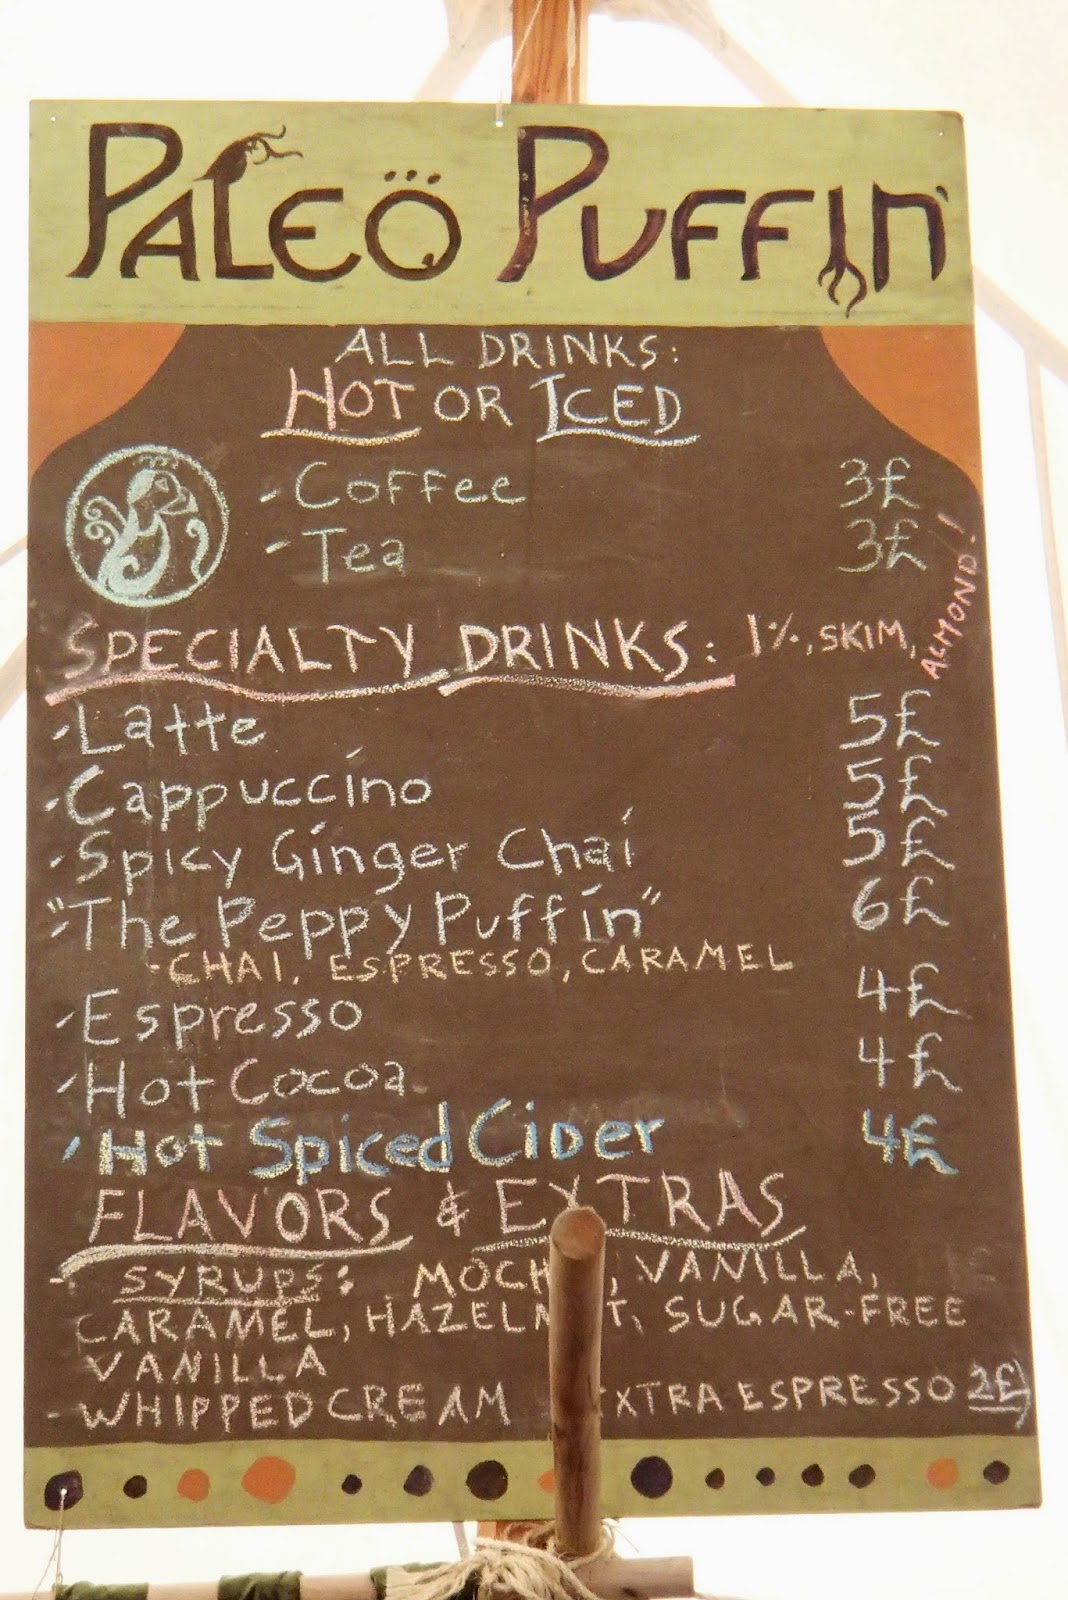 PALEO PUFFIN
ALL DRINKS:
HOT OR ICED
- Coffee 3£
- Tea 3£
SPECIALTY DRINKS: 1%, SKIM, ALMOND!
- Latte 5£
- Cappuccino 5£
- Spicy Ginger Chai 5£
"The Peppy Puffin" 6£
- CHAI, ESPRESSO, CARAMEL
- Espresso 4£
- Hot Cocoa 4£
- Hot Spiced Cider 4£
FLAVORS & EXTRAS
- SYRUPS: MOCHA, VANILLA,
CARAMEL, HAZELNUT, SUGAR-FREE
VANILLA
- WHIPPED CREAM EXTRA ESPRESSO 2£